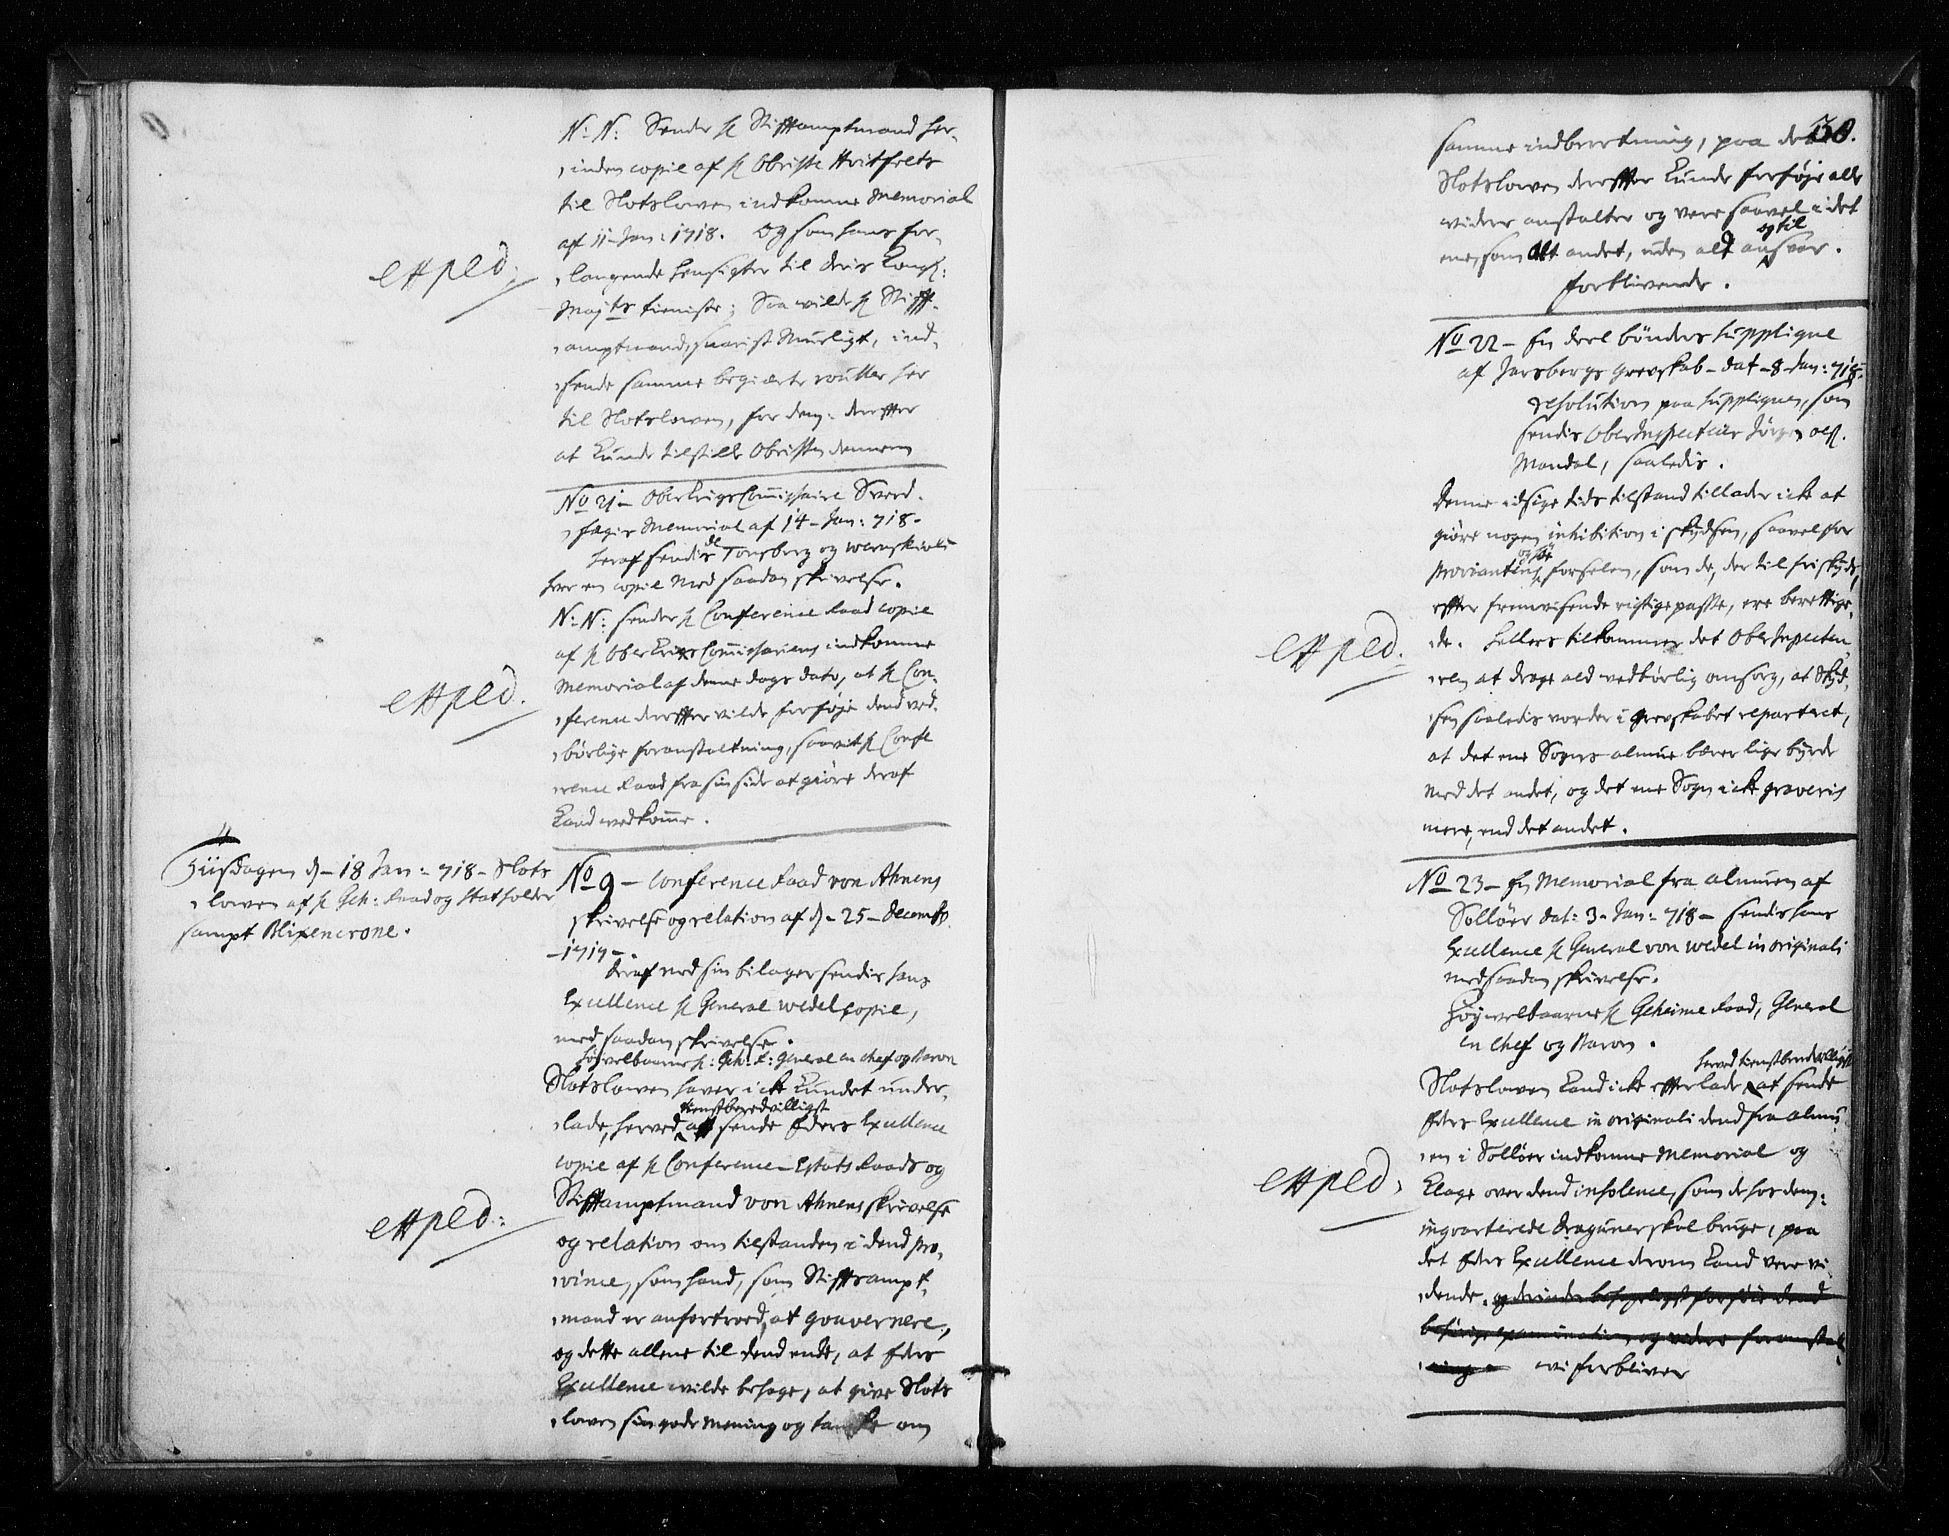 N: N: Sender hr Stifftamptmand her-
inden copie af hr Obriste Hvitfelts
til Slotslowen indkomne Memorial
af 11 Jan: 1718. Og som hans for-
langende hensigter til deris Kongl:
Mayts tieniste; Saa wilde hr Stifft-
amptmand, snarist Muerligt, ind-
sende samme begierte roulter her
til Slotslowen, for dem derefter
at kunde tilstille Obristen dennem
Expld:
No 21 – OberkrigsCommissaire Sverd-
fegers Memorial af 14 – Jan: 718.
heraf sendis de Tonsberg og Wernskiold
her en copie Med saadan skrivelse.
N: N: sender hr Conference Raad copie
af hr OberKrigsCommissariens indkomne
Memorial af denne dags dato, at hr Con-
ference derefter vilde forføje dend ved-
børlige foranstaltning, saavit hr Confe
rence Raad fra sin side at giøre deraf
Kand wedkomme.
Expld.
Tiisdagen d – 18 Jan: 718 – Slots
lowen af hr Geh: Raad og Statholder
sampt Blixencrone.
No 9 – Conference Raad von Ahnens
skrivelse og relation af d – 25 – Decembr.
– 1717 –.
deraf med sin bilager sendis hans
Excellence hr General Wedel copie,
med saadan skrivelse.
Høyvelbaarne hr: Geh: R: General en chef og Baron
Slotslowen haver ick kundet under-
lade, herved tienstberedvilligst at sende Eders Excellence
copie af hr Conference – Estats Raads og
Stifftamptmand von Ahnens skrivelse
og relation om tilstanden i dend pro-
vince, som hand, som Stifftsampt-
mand er anfortroed, at gouvernere,
og dette allene til dend ende, at Eders
Excellence wilde behage, at give Slots
lowen sin gode Mening og tancke om
Expld.:
30.
samme indberetning, paa det
Slotslowen derefter kunde forføje alle
widere anstalter og vere saavel i det
ene som alt andet, uden alt og til ansvar.
forblivende.
No 22 – En deel bønders Supplique
af Jarsbergs Grevskab – dat – 8 – Jan: 718.
resolution paa Suppliquen, som
sendis OberInspecteur Jørgen
Mandal, saaledis.
Denne idsige tids tilstand tillader ick at
giøre nogen inhibition i skydsen, saavel for
Proviantens og forselen, som de, der til friskyds,
efter fremvisende rigtige passe, ere berettige-
de. Hellers tilkommer det OberInspecteu-
ren at drage ald vedbørlig omsorg, at Skyd-
sen saaledis vorder i grevskabet reparteret,
at det ene Sogns almue bærer lige byrde
Med det andet, og det ene Sogn ick graveris
mere, end det andet.
Expld.
No 23 – En Memorial fra almuen af
Solløer dat: 3 – Jan: 718 – sendis hans
Excellence hr General von Wedel in originali
med saadan skrivelse.
Høywelbaarne hr Geheime Raad, General
en Chef og Baron.
Slotslowen Kand ick efterlade herved tienstberedvilligst at sende
Eders Excellence in originali dend fra almu-
en i Solløer indkomne Memorial og
Klage over dend insolence, som de hos dem
inqvarterede Draguner skal bruge, paa
det Eders Excellence derom Kand vere vi-
dende. og derinder behageligst forføje dend
behørige examination og videre foranstalt
ning
wi forbliver
Expld.